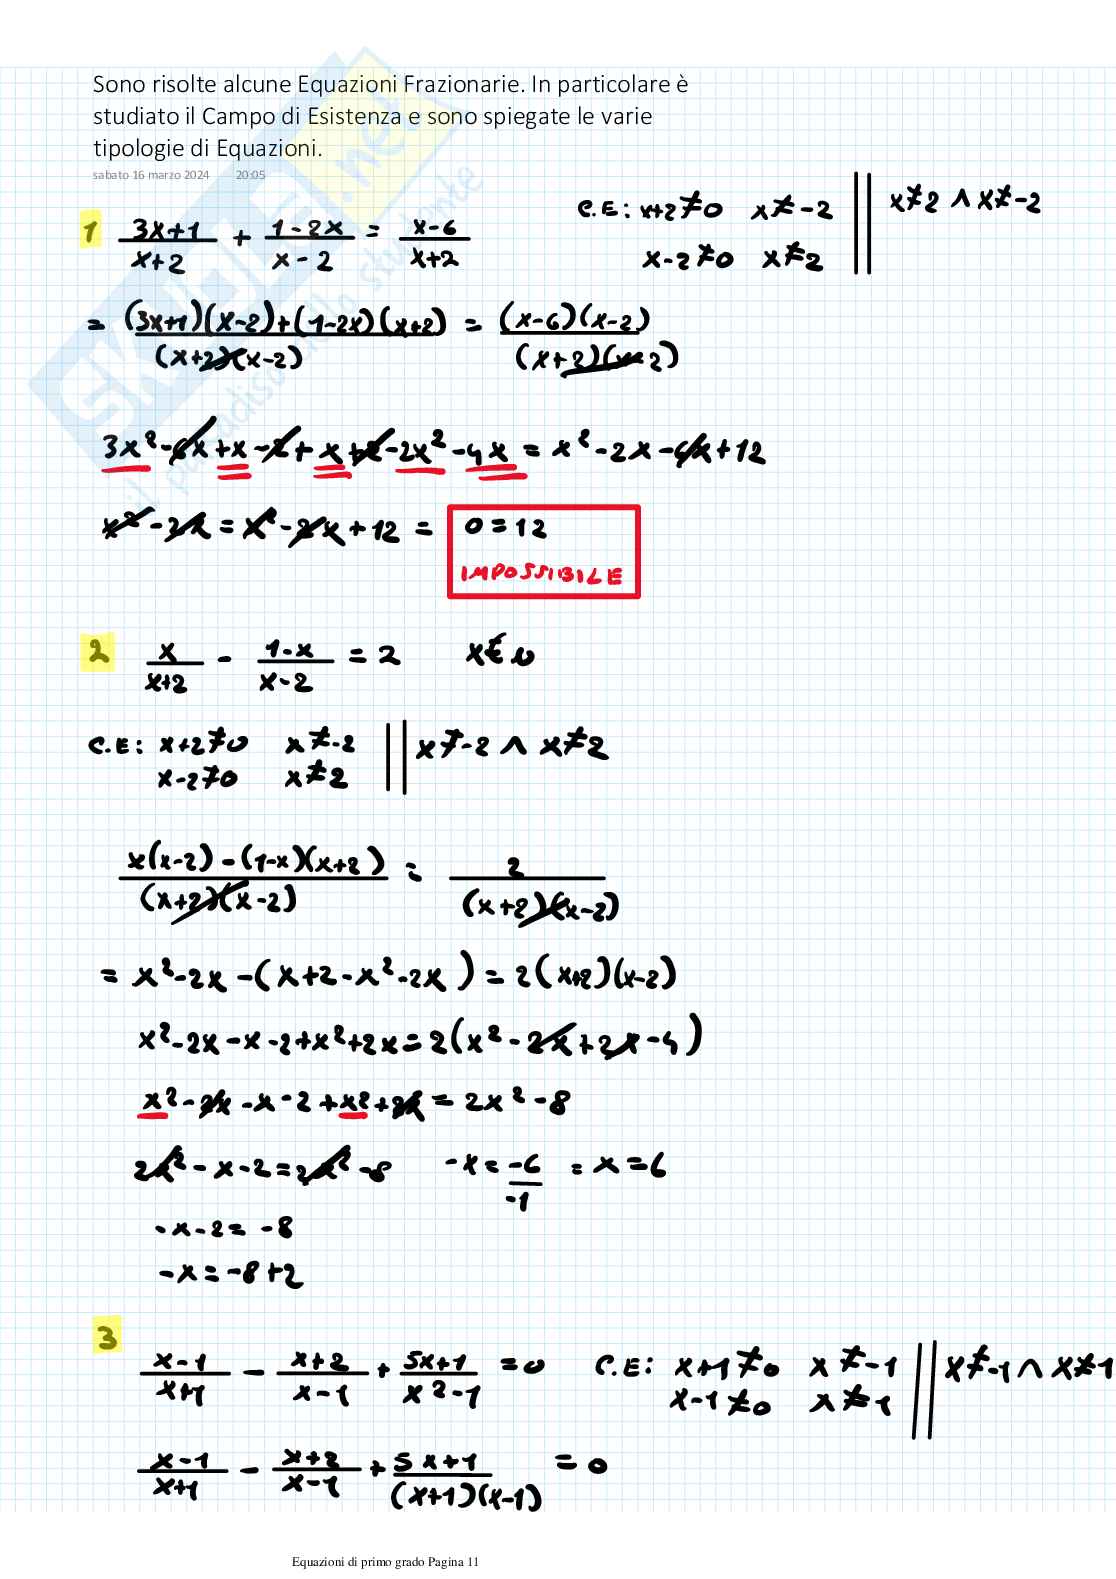 Sono risolte alcune Equazioni Frazionarie. In particolare è
studiato il Campo di Esistenza e sono spiegate le varie
tipologie di Equazioni.
sabato 16 marzo 2024 20:05
1 (3x+1)/(x+2) + (1-2x)/(x-2) = (x-6)/(x+2) C.E: x+2≠0 x≠-2 || x≠2 ∧ x≠-2
x-2≠0 x≠2
= ((3x+1)(x-2)+(1-2x)(x+2))/((x+2)(x-2)) = ((x-6)(x-2))/((x+2)(x-2))
3x²-6x+x-2+x+2-2x²-4x = x²-2x-6x+12
x²-2x = x²-2x+12 = 0=12
IMPOSSIBILE
2 x/(x+2) - (1-x)/(x-2) = 2
C.E: x+2≠0 x≠-2 || x≠-2 ∧ x≠2
x-2≠0 x≠2
(x(x-2)-(1-x)(x+2))/((x+2)(x-2)) = 2/((x+2)(x-2))
= x²-2x-(x+2-x²-2x) = 2(x+2)(x-2)
x²-2x-x-2+x²+2x=2(x²-2x+2x-4)
x²-2x-x-2+x²+2x = 2x²-8
2x²-x-2=2x²-8 -x = -6/-1 = x=6
-x-2= -8
-x=-8+2
3
(x-1)/(x+1) - (x+2)/(x-1) + (5x+1)/(x²-1) =0 C.E: x+1≠0 x≠-1 || x≠-1 ∧ x≠1
x-1≠0 x≠1
(x-1)/(x+1) - (x+2)/(x-1) + (5x+1)/((x+1)(x-1)) = 0
Equazioni di primo grado Pagina 11